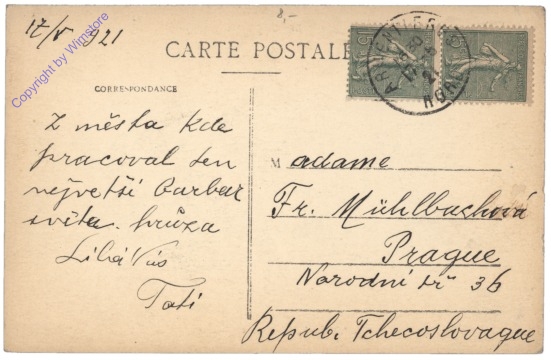 17/V 921
8,-
CARTE POSTALE
CORRESPONDANCE
Z města kde
pracoval ten
největší barbar
světa. hrůza
Líbá Vás
Tati
Madame
Fr. Mühlbachová
Prague
Narodní tř 36
Repub. Tchecoslovaque
15
15
NORD
Copyright by Wirnstore